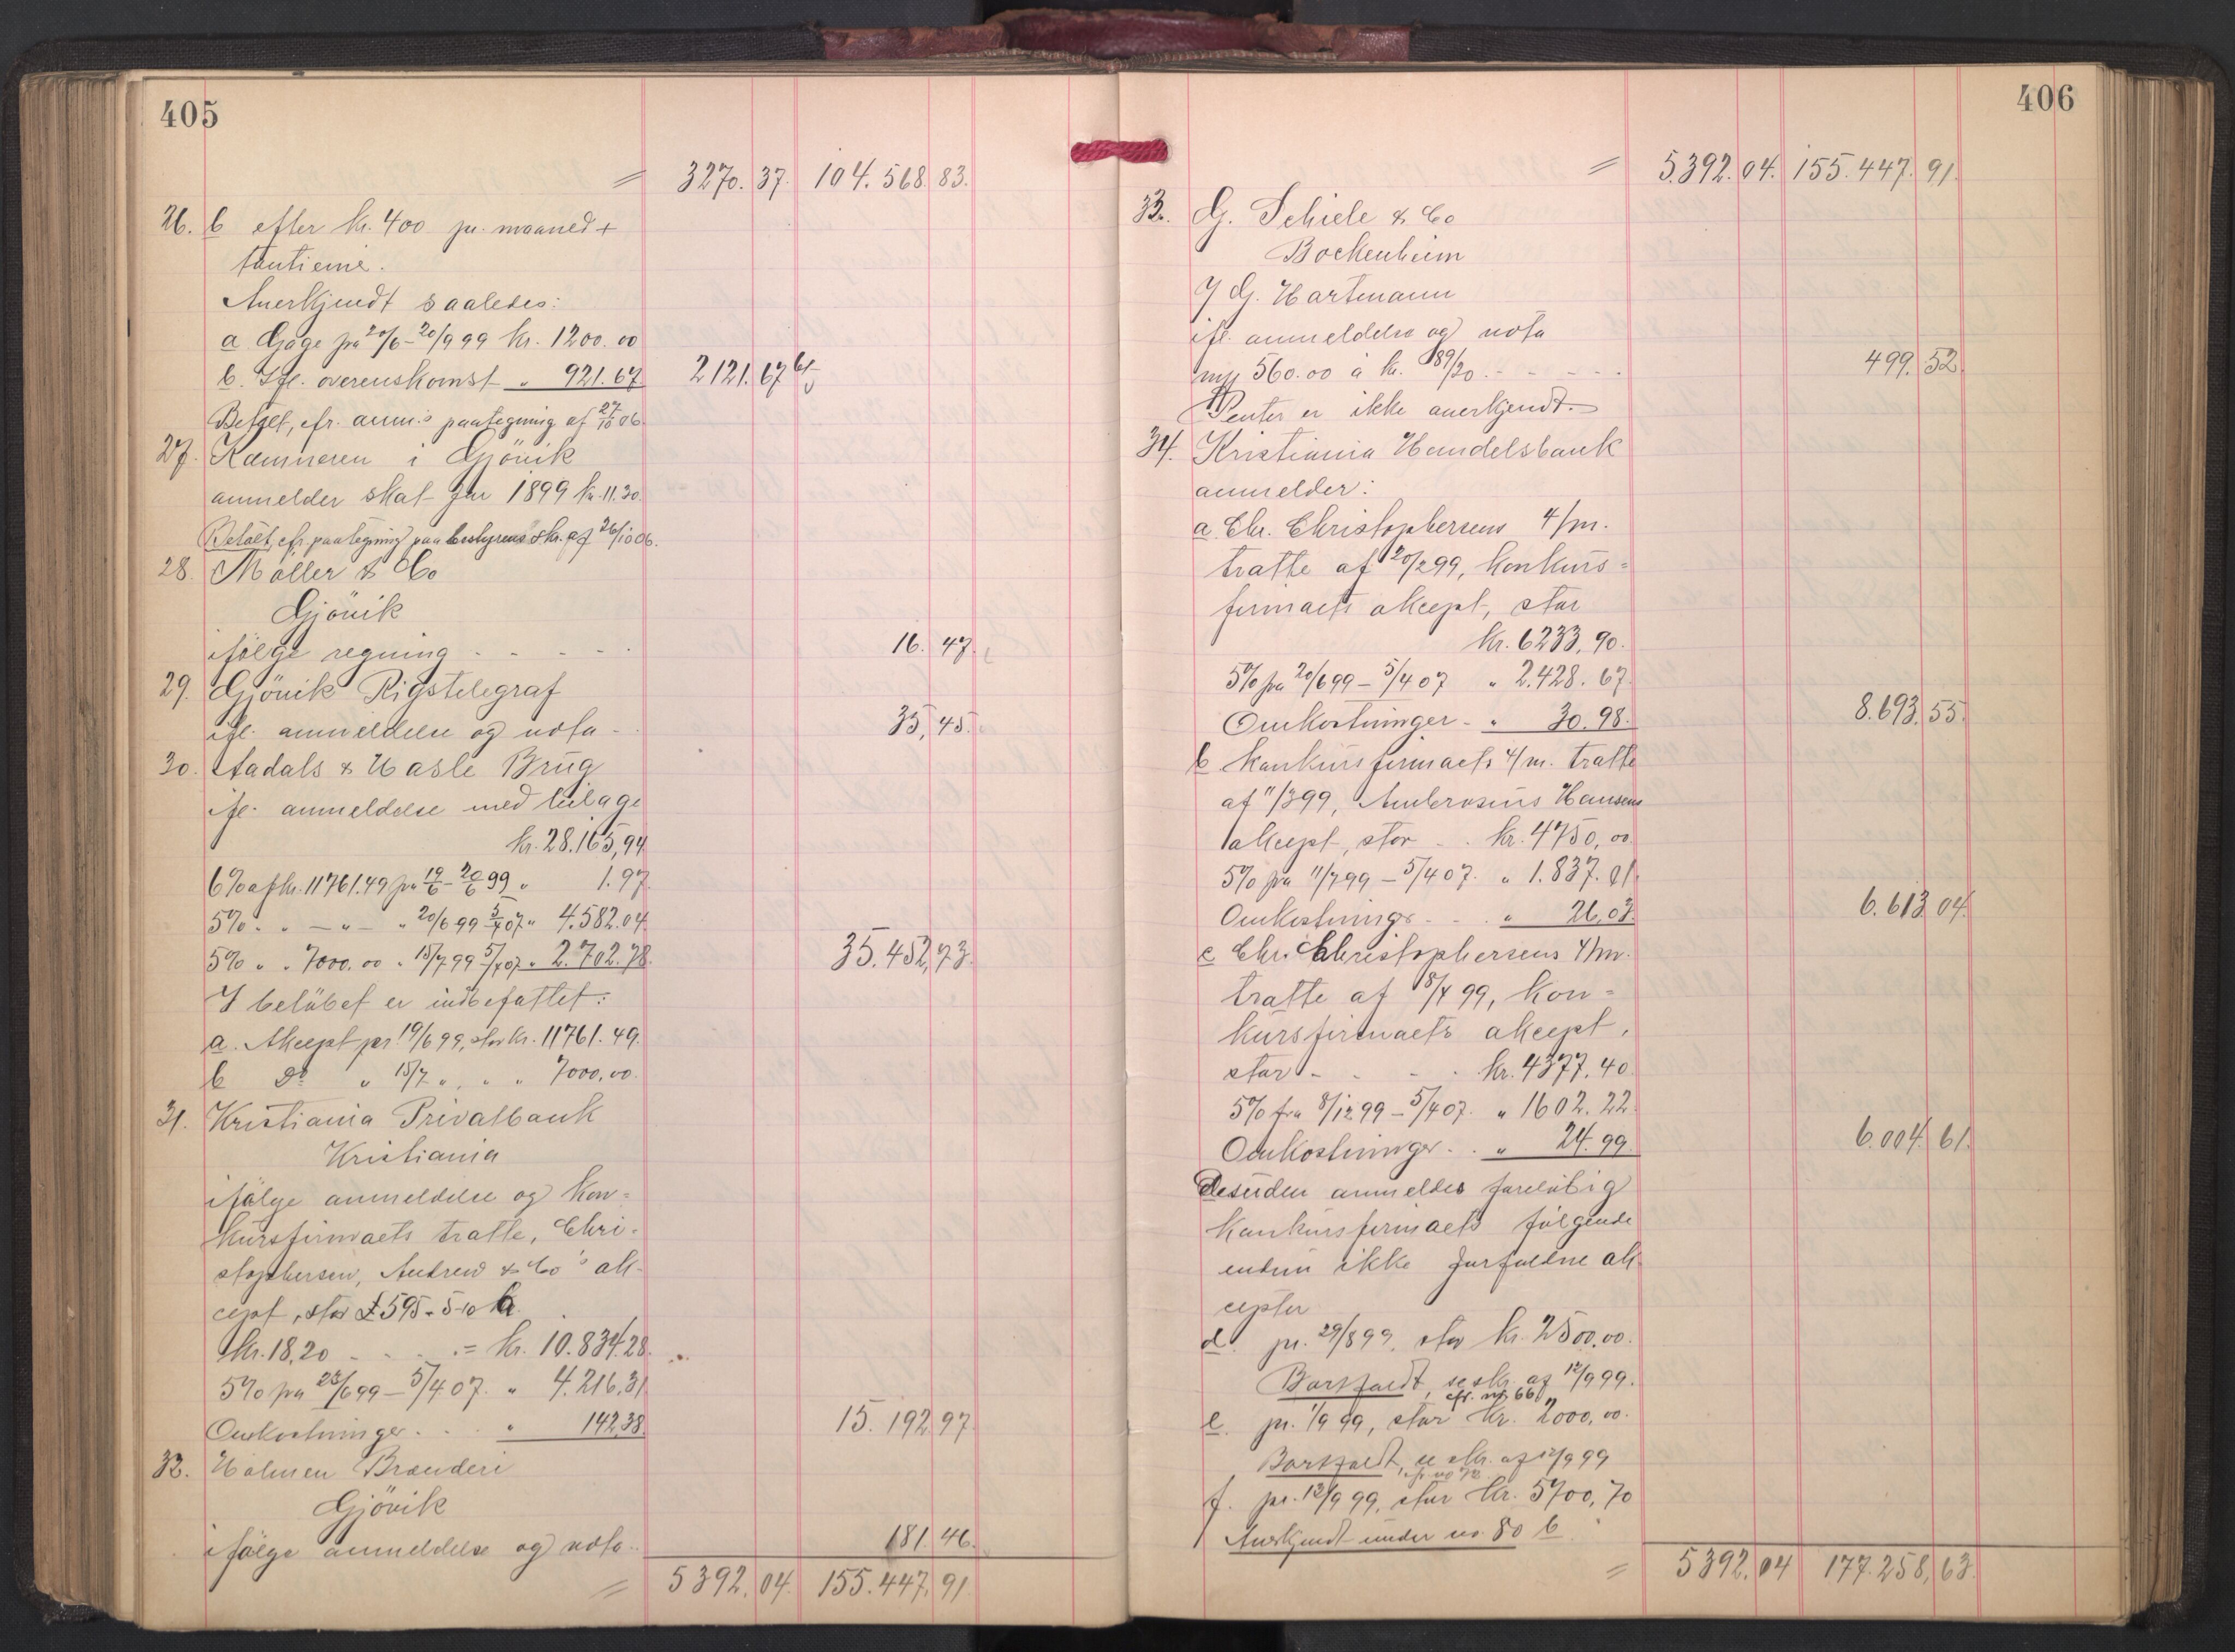 405
= 3270. 37. 104.568. 83.
26. b efter kr. 400 pr. maaned +
tantieme.
Anerkjendt saaledes:
a Gage fra 20/6 – 20/9 99 kr. 1200.00
b. Ifl. overenskomst " 921.67 2121. 67
Betalt, cfr. anm:s paategning af 27/10 06.
27. Kæmneren i Gjövik
anmelder skat for 1899 kr. 11.30.
Betalt, cfr. paategning paa bestyrens skr. af 26/10 06.
28. Möller & Co
Gjövik
ifølge regning - - - - - 16. 47.
29. Gjövik Rigstelegraf
ifl. anmeldelse og nota - 35, 45.
30. Aadals & Hasle Brug
ifl. anmeldelse med bilage
kr. 28.165,94
6% af kr. 11761.49 fra 19/6 – 20/6 99 " 1.97.
5% " " – " – " 20/6 99 5/4 07 " 4.582.04.
5% " " 7000.00 " 15/7 99 5/4 07 " 2.702.78. 35.452, 73.
I beløbet er indbefattet:
a. Akcept pr. 19/6 99, stor kr. 11761.49.
b Do " 15/7 " " " 7000,00.
31. Kristiania Privatbank
Kristiania
ifølge anmeldelse og kon=
kursfirmaets tratte, Chri-
stophersen, Andrew & Co's ak-
cept, stor £ 595-5-10 à
kr. 18,20 - - - = kr. 10.834.28.
5% fra 23/6 99 – 5/4 07. " 4.216,31
Omkostninger . . . " 142,38. 15.192, 97.
32. Holmen Brænderi
Gjövik
ifølge anmeldelse og nota.. 181. 46.
= 5392, 04. 155.447, 91.
406
= 5.392. 04. 155.447. 91.
33. G. Schiele & Co
Bockenheim
J. G. Hartmann
ifl. anmeldelse og nota
mp 560.00 à kr. 89/20 - - - - - 499, 52.
Renter er ikke anerkjendt.
34. Kristiania Handelsbank
anmelder:
a. Chr. Christophersens 4/m.
tratte af 20/2 99, konkurs=
firmaets akcept, stor
kr. 6233,90.
5% fra 20/6 99 – 5/4 07 " 2.428.67.
Omkostninger - " 30.98. 8.693, 55.
b konkursfirmaets 4/m. tratte
af 11/3 99, Ambrosius Hansens
akcept, stor - . kr. 4750,00.
5% fra 11/7 99 – 5/4 07. " 1.837.01.
Omkostninger - - . " 26,03. 6.613 04.
c Chr. Christophersens 4/m.
tratte af 8/8 99, kon=
kursfirmaets akcept,
stor - - - - kr. 4377,40
5% fra 8/12 99 – 5/4 07. " 1602.22.
Omkostninger - . " 24.99. 6.004, 61.
Desuden anmeldes foreløbig
konkursfirmaets følgende
endnu ikke forfaldne ak-
cepter
d. pr. 29/8 99, stor kr. 2500,00.
Bortfaldt, se skr. af 12/9 99.
cfr. no 66
e. pr. 1/9 99, stor kr. 2000,00.
Bortfaldt, se skr. af 12/9 99
cfr. no 72
f. pr. 12/9 99, stor kr. 5700,70
Anerkjendt under no. 80 b.
= 5392. 04 177.258, 63.